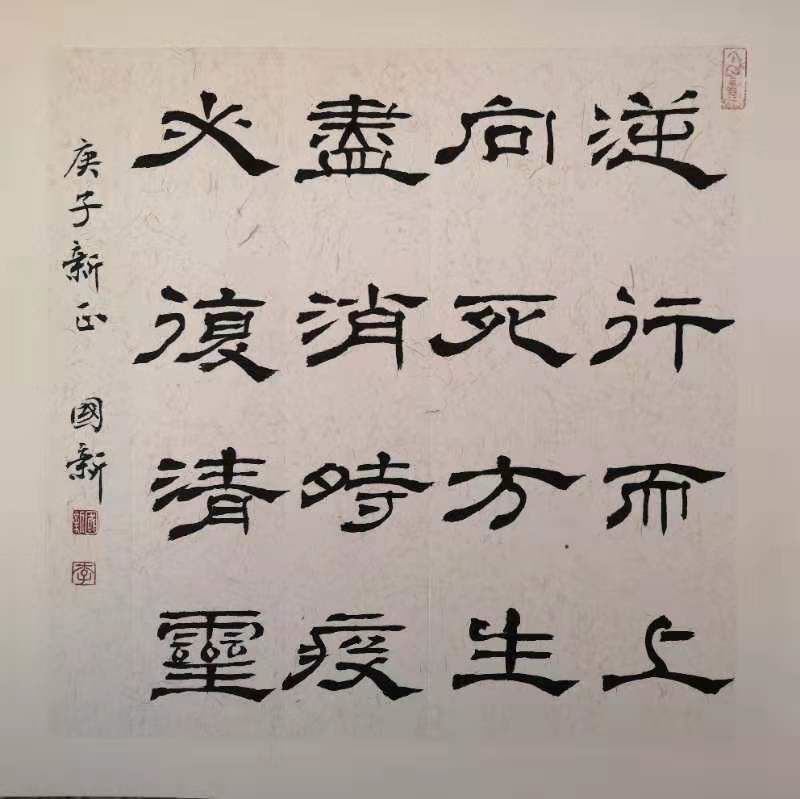 逆行而上
向死方生
盡消時疫
必復清靈
庚子新正 國新
國新